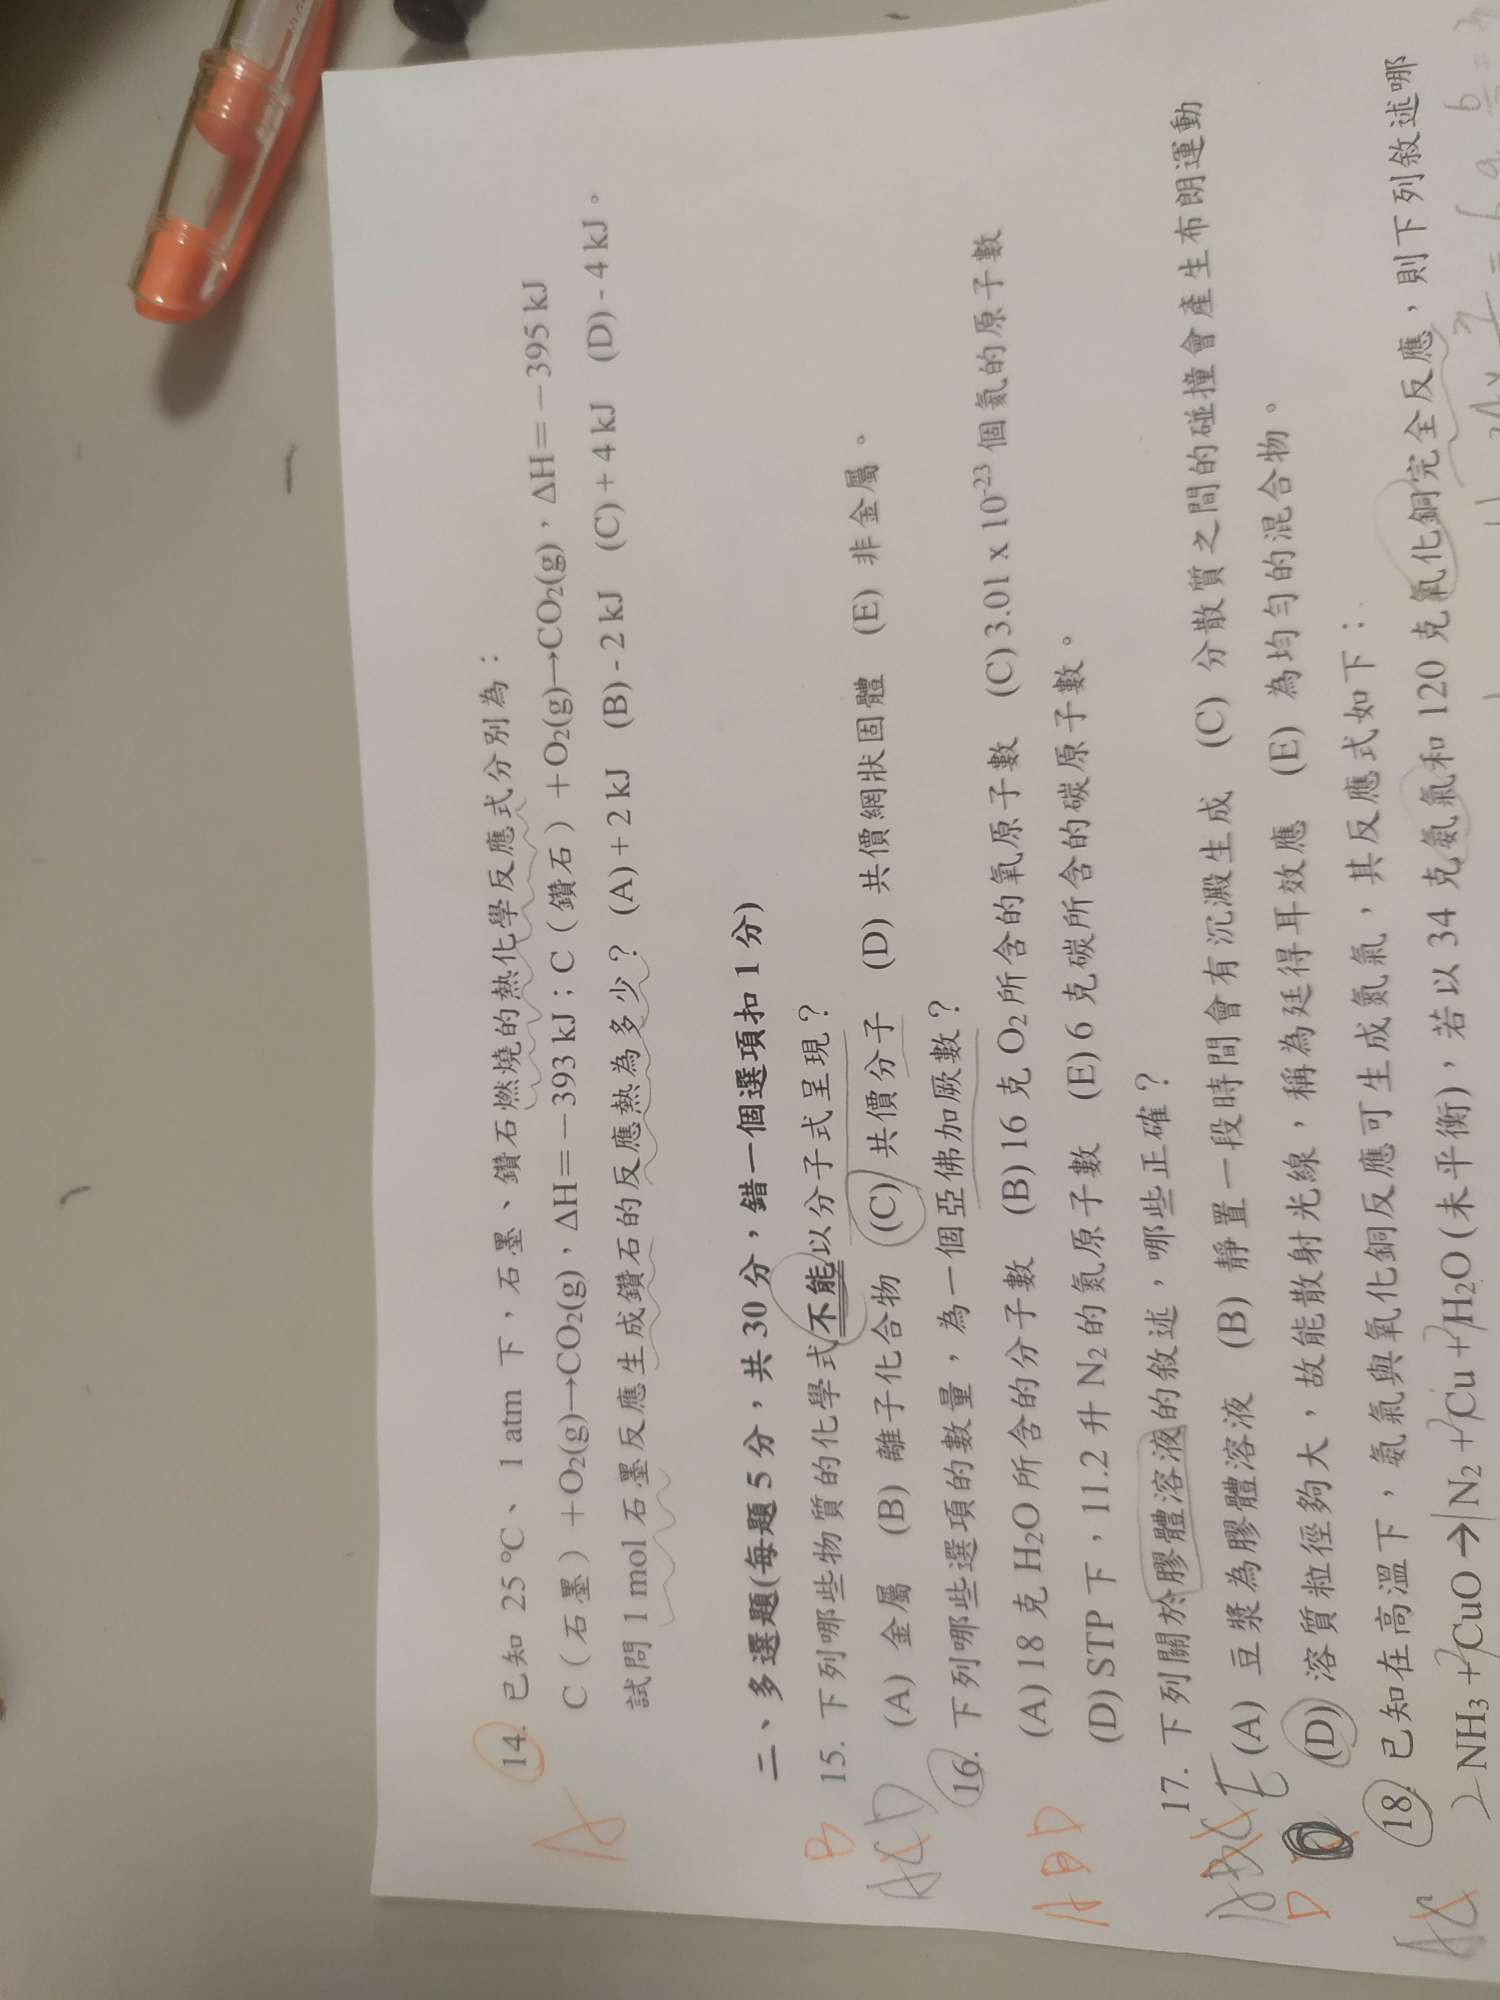 14. 已知 25 ℃、1 atm 下，石墨、鑽石燃燒的熱化學反應式分別為：
C（石墨）＋O₂(g)→CO₂(g)，ΔH＝－393 kJ；C（鑽石）＋O₂(g)→CO₂(g)，ΔH＝－395 kJ
試問 1 mol 石墨反應生成鑽石的反應熱為多少？ (A) + 2 kJ (B) - 2 kJ (C) + 4 kJ (D) - 4 kJ。
A
二、多選題(每題 5 分，共 30 分，錯一個選項扣 1 分)
15. 下列哪些物質的化學式不能以分子式呈現？
B
(A) 金屬 (B) 離子化合物 (C) 共價分子 (D) 共價網狀固體 (E) 非金屬。
16. 下列哪些選項的數量，為一個亞佛加厥數？
(A) 18 克 H₂O 所含的分子數 (B) 16 克 O₂ 所含的氧原子數 (C) 3.01 x 10⁻²³ 個氦的原子數
ABD
(D) STP 下，11.2 升 N₂ 的氮原子數 (E) 6 克碳所含的碳原子數。
17. 下列關於膠體溶液的敘述，哪些正確？
(A) 豆漿為膠體溶液 (B) 靜置一段時間會有沉澱生成 (C) 分散質之間的碰撞會產生布朗運動
D
(D) 溶質粒徑夠大，故能散射光線，稱為廷得耳效應 (E) 為均勻的混合物。
18. 已知在高溫下，氨氣與氧化銅反應可生成氮氣，其反應式如下：
2 NH₃ + CuO → N₂ + Cu + H₂O (未平衡)，若以 34 克氨氣和 120 克氧化銅完全反應，則下列敘述哪